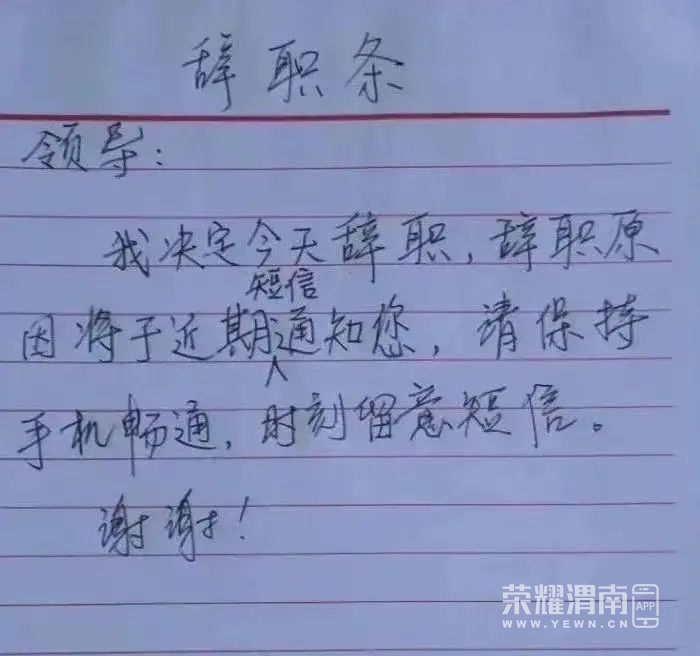 辞职条
领导：
我决定今天辞职，辞职原
短信
因将于近期通知您，请保持
手机畅通，时刻留意短信。
谢谢！
荣耀渭南
APP
WWW.YEWN.CN